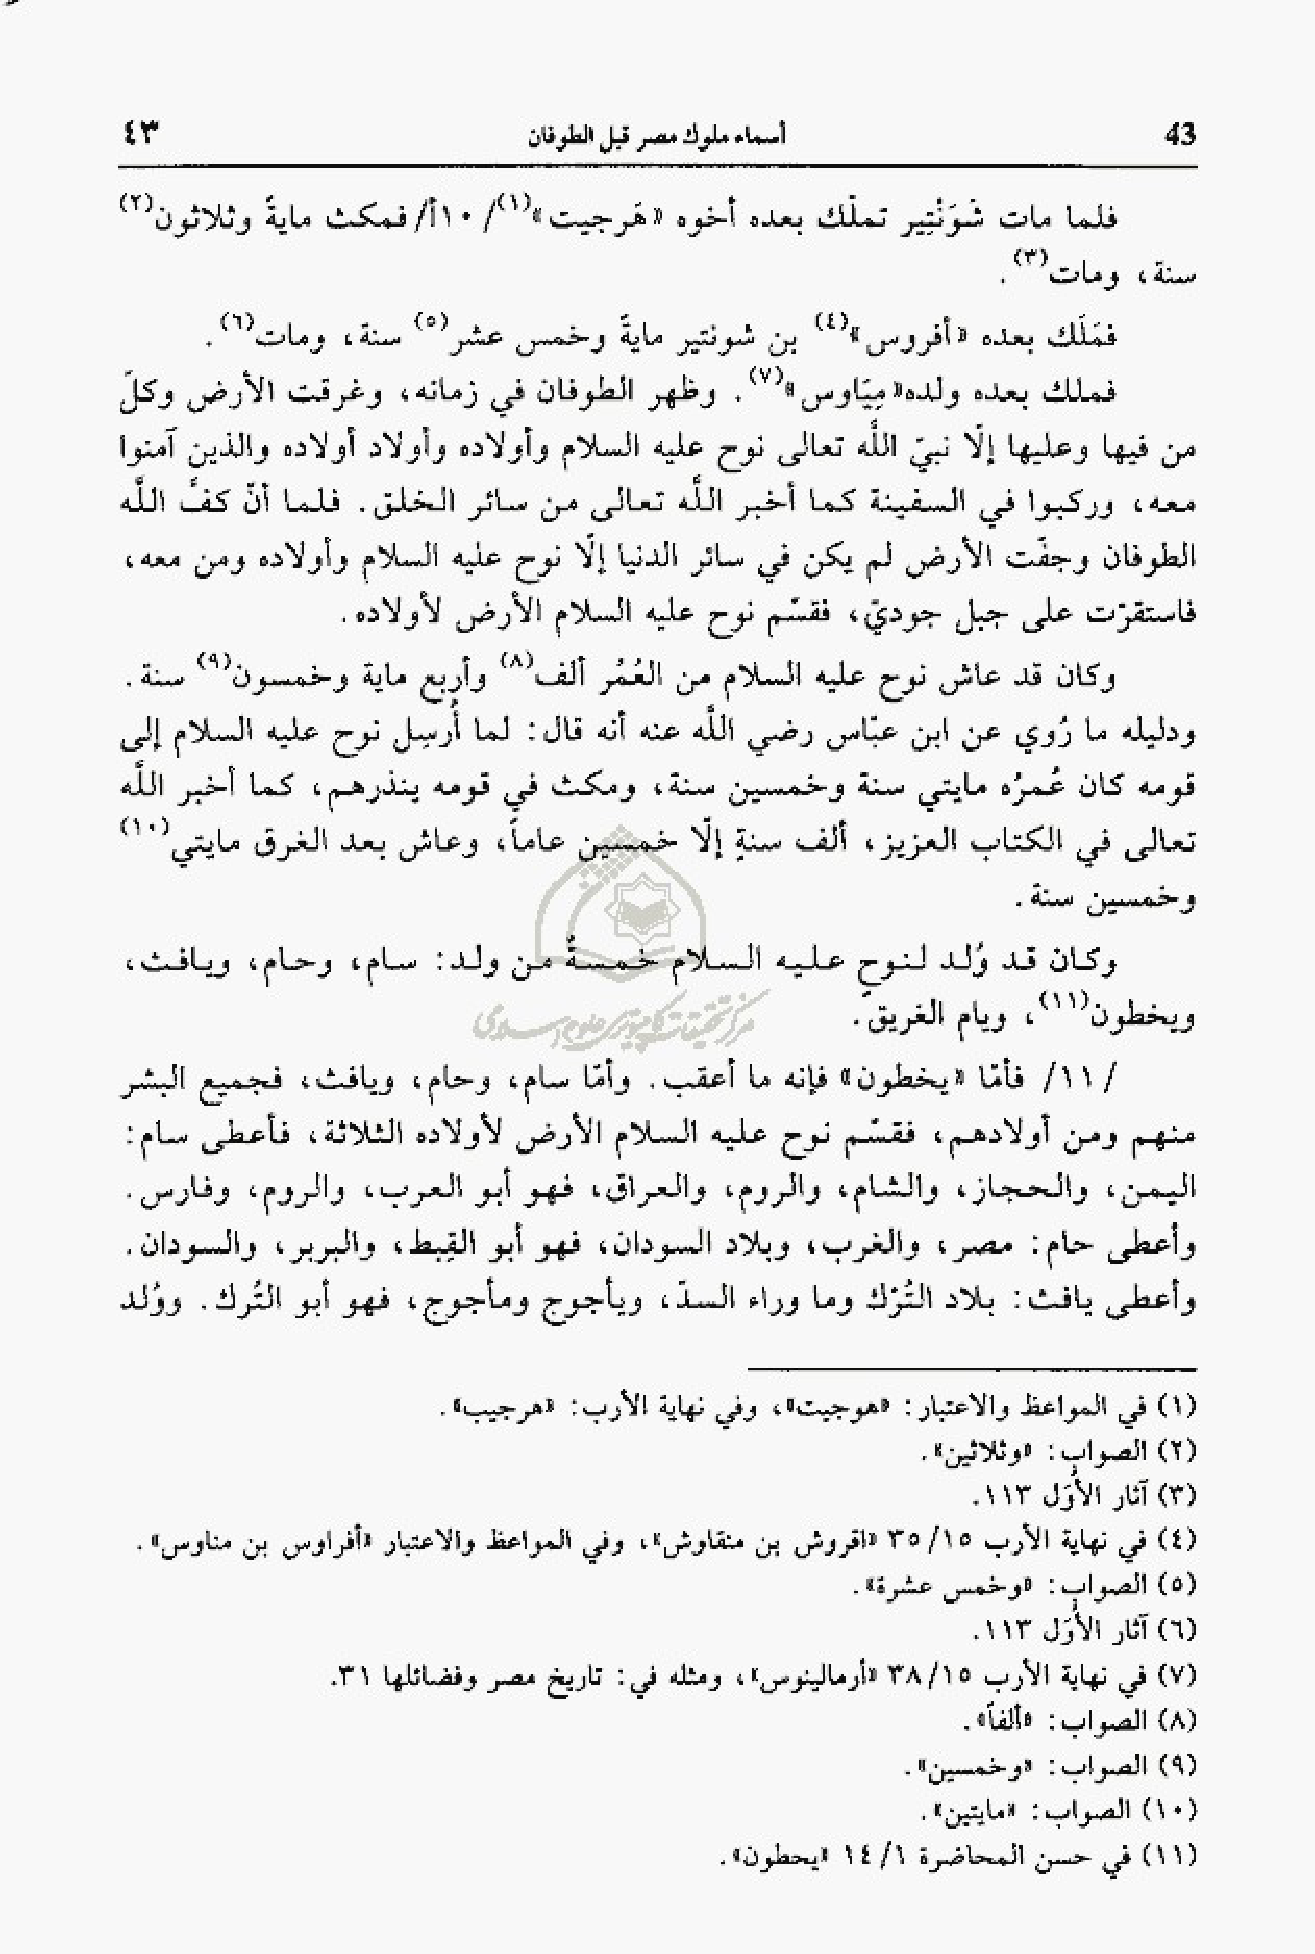 43 أسماء ملوك مصر قبل الطوفان ٤٣
فلما مات شَوَنْتِير تملّك بعده أخوه «هَرجيت»(١)/ ١٠أ/ فمكث مايةً وثلاثون(٢)
سنة، ومات(٣).
فمَلَك بعده «أفروس»(٤) بن شونتير مايةً وخمس عشر(٥) سنة، ومات(٦).
فملك بعده ولده«مِيَاوس»(٧). وظهر الطوفان في زمانه، وغرقت الأرض وكلّ
من فيها وعليها إلّا نبيّ اللَّه تعالى نوح عليه السلام وأولاده وأولاد أولاده والذين آمنوا
معه، وركبوا في السفينة كما أخبر اللَّه تعالى من سائر الخلق. فلما أنّ كفَّ اللَّه
الطوفان وجفّت الأرض لم يكن في سائر الدنيا إلّا نوح عليه السلام وأولاده ومن معه،
فاستقرّت على جبل جوديّ، فقسّم نوح عليه السلام الأرض لأولاده.
وكان قد عاش نوح عليه السلام من العُمُر ألف(٨) وأربع ماية وخمسون(٩) سنة.
ودليله ما رُوي عن ابن عبّاس رضي اللَّه عنه أنه قال: لما أُرسِل نوح عليه السلام إلى
قومه كان عُمرُه مايتي سنة وخمسين سنة، ومكث في قومه ينذرهم، كما أخبر اللَّه
تعالى في الكتاب العزيز، ألف سنةٍ إلّا خمسين عاماً، وعاش بعد الغرق مايتي(١٠)
وخمسين سنة.
وكان قد وُلد لنوحٍ عليه السلام خمسةٌ من ولد: سام، وحام، ويافث،
ويخطون(١١)، ويام الغريق.
/١١/ فأمّا «يخطون» فإنه ما أعقب. وأمّا سام، وحام، ويافث، فجميع البشر
منهم ومن أولادهم، فقسّم نوح عليه السلام الأرض لأولاده الثلاثة، فأعطى سام:
اليمن، والحجاز، والشام، والروم، والعراق، فهو أبو العرب، والروم، وفارس.
وأعطى حام: مصر، والغرب، وبلاد السودان، فهو أبو القِبط، والبربر، والسودان.
وأعطى يافث: بلاد التُرْك وما وراء السدّ، ويأجوج ومأجوج، فهو أبو التُرك. ووُلد
(١) في المواعظ والاعتبار: «هوجيت»، وفي نهاية الأرب: «هرجيب».
(٢) الصواب: «وثلاثين».
(٣) آثار الأُوَل ١١٣.
(٤) في نهاية الأرب ٣٥/١٥ «اقروش بن منقاوش»، وفي المواعظ والاعتبار «أفراوس بن مناوس».
(٥) الصواب: «وخمس عشرة».
(٦) آثار الأُوَل ١١٣.
(٧) في نهاية الأرب ٣٨/١٥ «أرمالينوس»، ومثله في: تاريخ مصر وفضائلها ٣١.
(٨) الصواب: «ألفاً».
(٩) الصواب: «وخمسين».
(١٠) الصواب: «مايتين».
(١١) في حسن المحاضرة ١٤/١ «يحطون».
مركز تحقيقات كامپيوتری علوم اسلامی